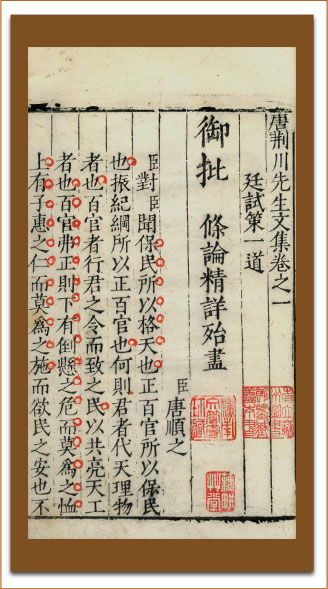 唐荊川先生文集卷之一
廷試第一道
御批 條論精詳殆盡
臣唐順之
臣對臣聞保民所以格天也正百官所以保民
也振紀綱所以正百官也何則君者代天理物
者也百官者行君之令而致之民以共亮天工
者也百官弗正則下有倒懸之危而莫為之恤
上有子惠之仁而莫為之施而欲民之安也不